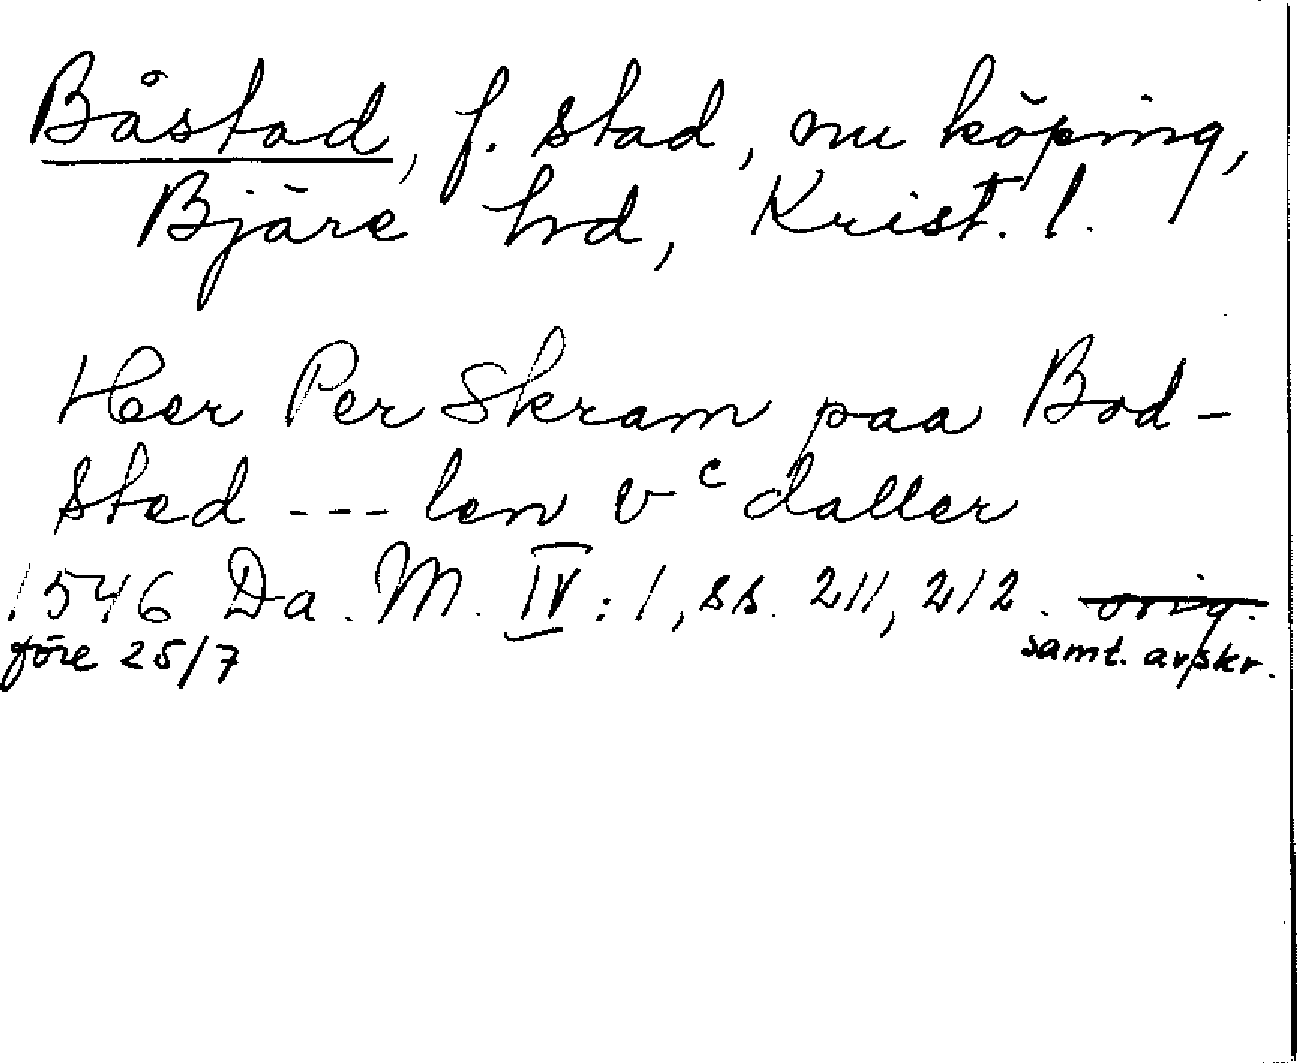 Båstad, f. stad, nu köping,
Bjäre hd, Krist. l.
Her Per Skram paa Bod-
sted --- len vᶜ daller
1546 Da. M. IV: 1, ss. 211, 212. ~~orig.~~
före 25/7 samt. avskr.